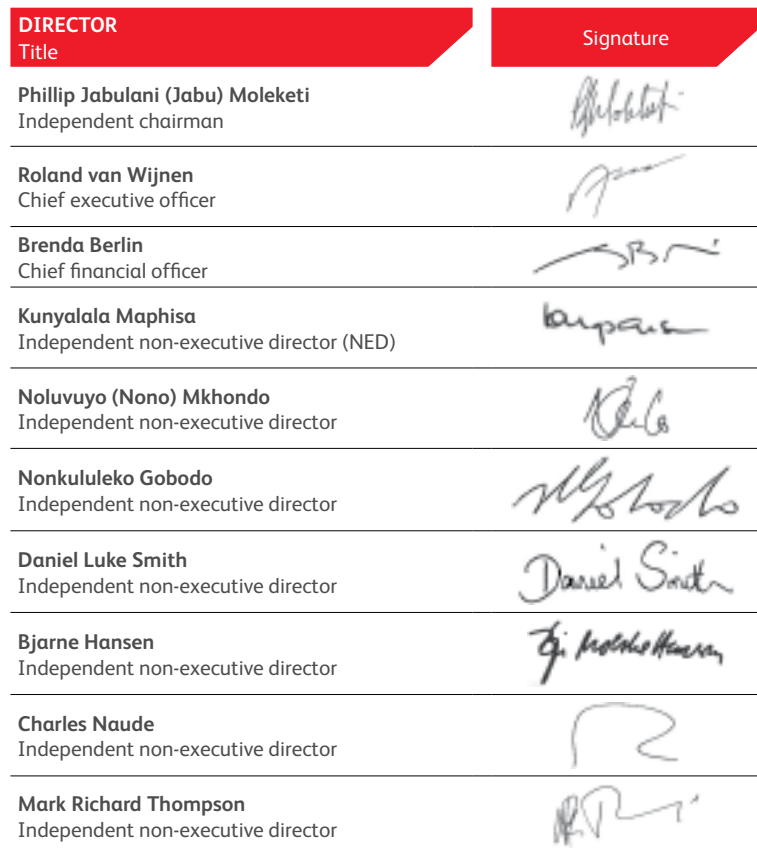 DIRECTOR
Title
Signature
Phillip Jabulani (Jabu) Moleketi
Independent chairman
Roland van Wijnen
Chief executive officer
Brenda Berlin
Chief financial officer
Kunyalala Maphisa
Independent non-executive director (NED)
Noluvuyo (Nono) Mkhondo
Independent non-executive director
Nonkululeko Gobodo
Independent non-executive director
Daniel Luke Smith
Independent non-executive director
Daniel Smith
Bjarne Hansen
Independent non-executive director
Charles Naude
Independent non-executive director
Mark Richard Thompson
Independent non-executive director